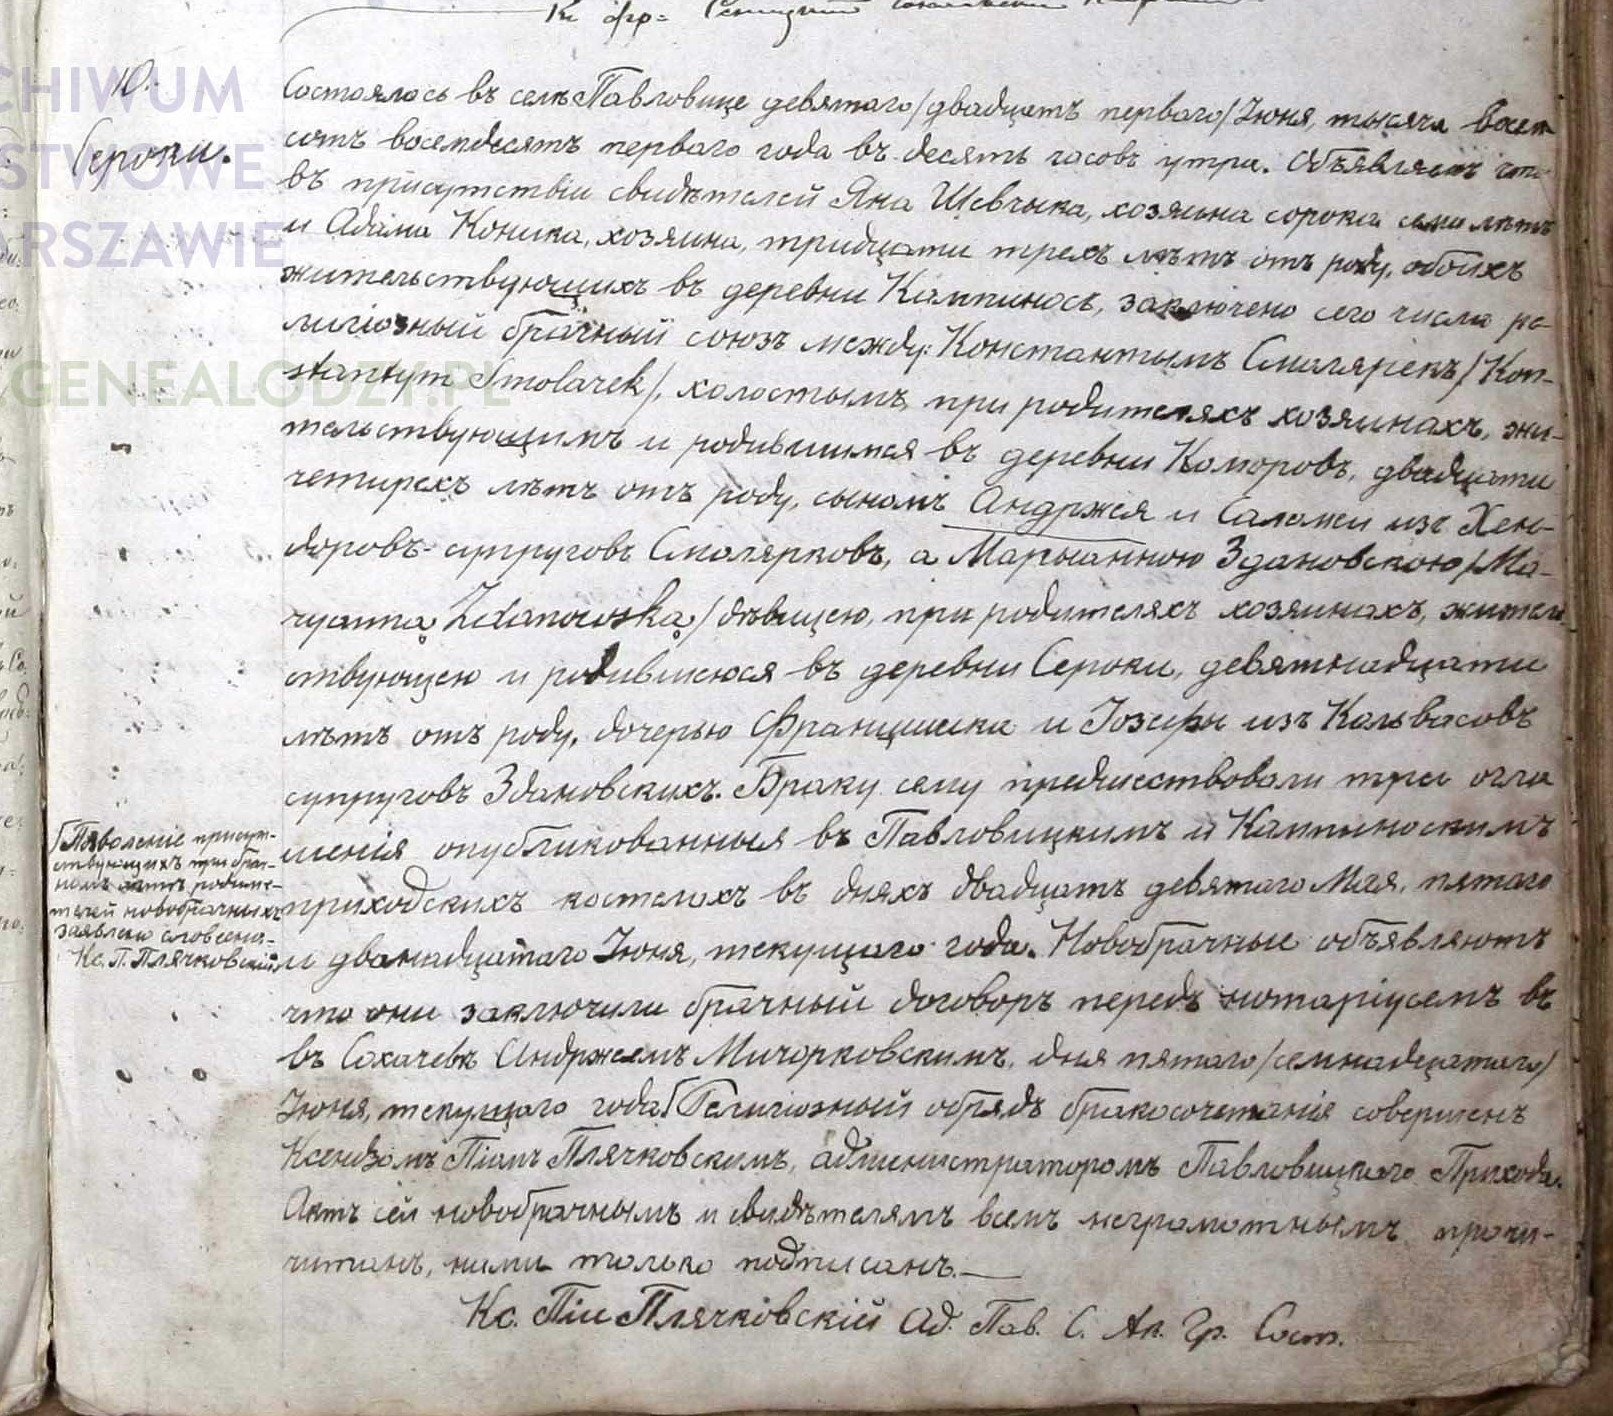 10.
Сероки.
Состоялось въ селѣ Павловице девятаго /двадцать перваго/ Іюня, тысяча восем-
сотъ восемдесятъ перваго года въ десять часовъ утра. Объявляемъ что
въ присутствіи свидѣтелей Яна Шевчыка, хозяина сорока семи лѣтъ
и Адама Коника, хозяина, тридцати трехъ лѣтъ отъ роду, обоихъ
жительствующихъ въ деревни Кампиносъ, заключено сего числа ре-
лигіозный брачный союзъ между: Константымъ Смолярекъ /Kon-
stantym Smolarek/, холостымъ, при родителяхъ хозяинахъ, жи-
тельствующимъ и родившимся въ деревни Коморовъ, двадцати
четырехъ лѣтъ отъ роду, сыномъ Андржея и Саломеи изъ Хен-
доровъ супруговъ Смолярковъ, а Марыанною Здановскою /Ma-
ryanną Zdanowską/ дѣвицею, при родителяхъ хозяинахъ, жител
ствующею и родившеюся въ деревни Сероки, девятнадцати
лѣтъ отъ роду, дочерью Францишка и Іозефы изъ Кольвасовъ
супруговъ Здановскихъ. Браку сему предшествовали три огла
шенія опубликованныя въ Павловицкимъ и Кампиноскимъ
приходскихъ костелахъ въ дняхъ двадцать девятаго Мая, пятаго
и дванадцатаго Іюня, текущаго года. Новобрачные объявляютъ
что они заключили брачный договоръ передъ нотаріусемъ въ
въ Сохачевѣ Андржеемъ Мичорковскимъ, дня пятаго /семнадцатаго/
Іюня, текущаго года. Религіозный обрядъ бракосочетанія совершенъ
Ксендзомъ Піемъ Плячковскимъ, администраторомъ Павловицкаго Прихода.
Актъ сей новобрачнымъ и свидѣтелямъ всемъ неграмотнымъ прочи-
читанъ, нами только подписанъ.
Кс. Пій Плячковскій Ад. Пав. С. Ак. Гр. Сост.
Позволеніе присут-
ствующихъ при брач-
номъ актѣ родите-
телей новобрачныхъ
заявлено словесно.
Кс. П. Плячковскій
CHIWUM
STWOWE
ARSZAWIE
GENEALODZY.PL